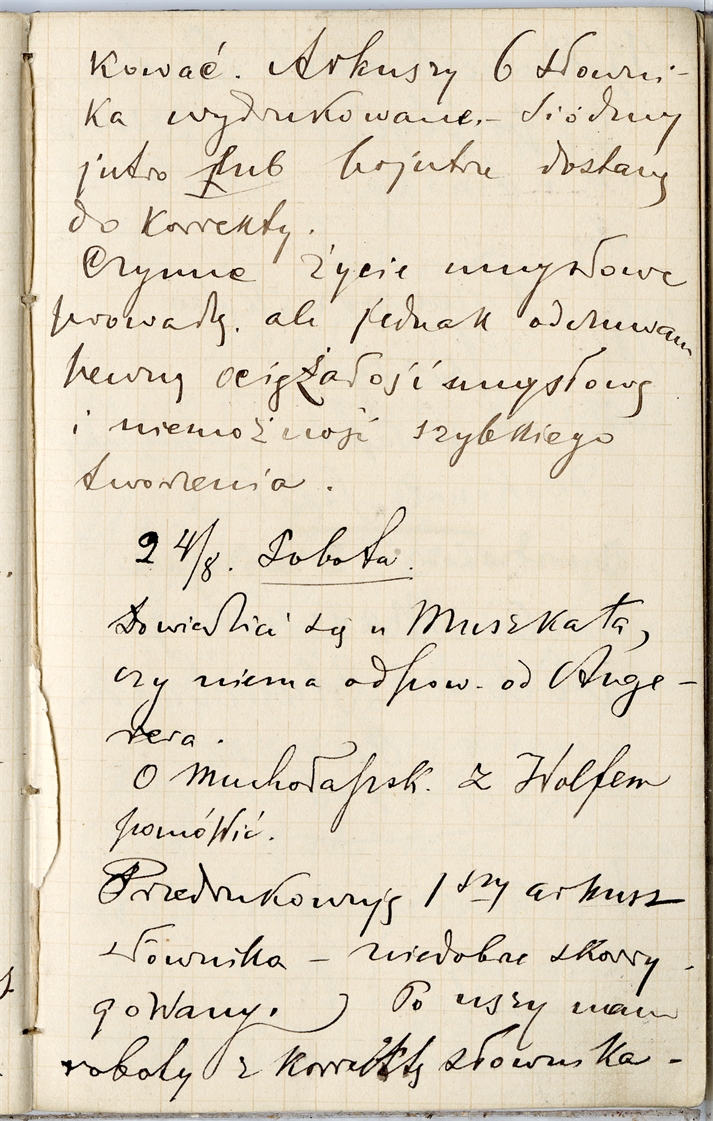 kować. Arkuszy 6 słowni-
ka wydrukowane.- Siódmy
jutro lub pojutrze dostanę
do korrekty.
Czynne życie umysłowe
prowadzę. ale jednak odczuwam
pewną ociężałość umysłową
i niemożność szybkiego
tworzenia.
24/8. Sobota.
Dowiedzieć się u Muszkata,
czy niema odpow. od Ange-
rera.
O Muchołapsk. z Wolfem
pomówić.
Przedrukowuję 1szy arkusz
słownika – niedobrze skorry-
gowany.) Po uszy mam
roboty z korrektą słownika -